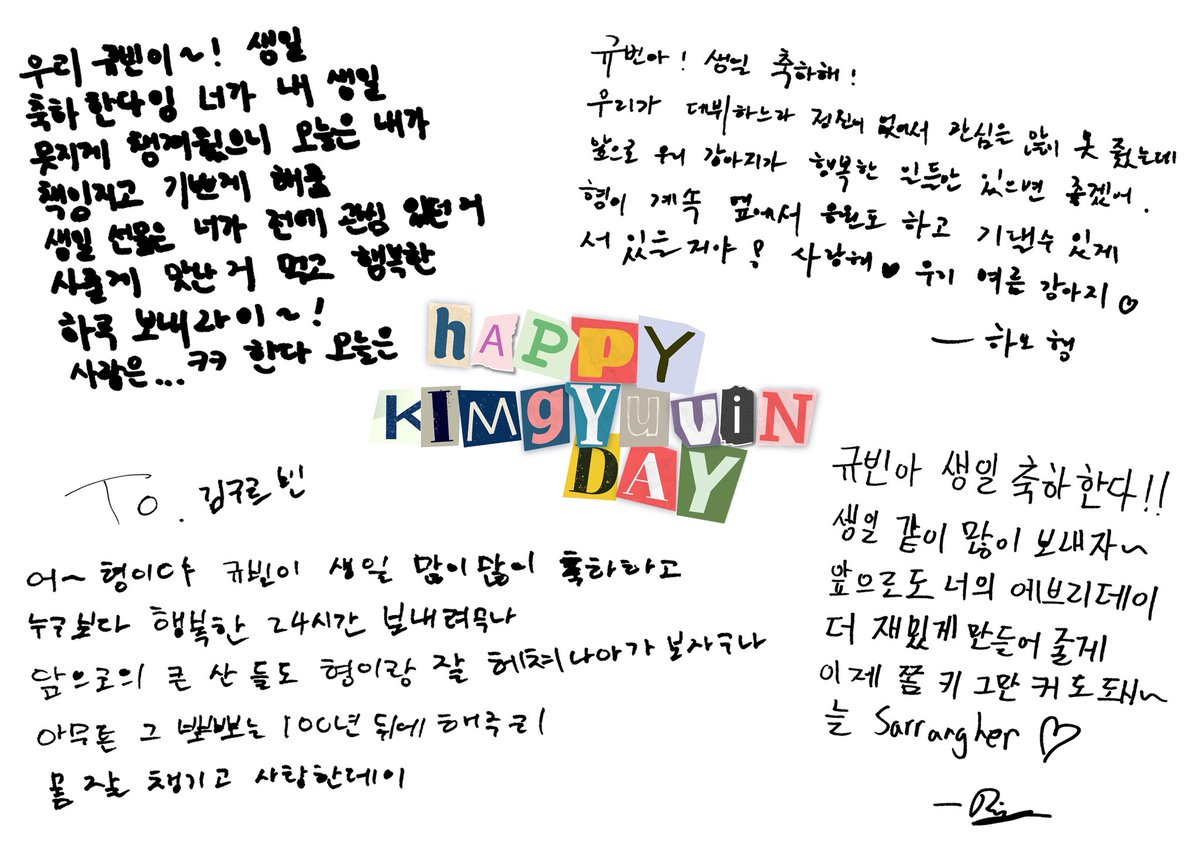 우리 규빈이~! 생일
축하한다잉 너가 내 생일
멋지게 챙겨줬으니 오늘은 내가
책임지고 기쁘게 해줌
생일 선물은 너가 전에 관심 있던 거
사줄게 맛난 거 먹고 행복한
하루 보내라이~!
사랑은... ㅋㅋ 한다 오늘은
규빈아! 생일 축하해!
우리가 데뷔하느라 정신이 없어서 관심을 많이 못 줬는데
앞으로 우리 강아지가 행복한 일들만 있으면 좋겠어.
형이 계속 옆에서 응원도 하고 기댈수 있게
서 있을거야! 사랑해♥ 우리 여름 강아지♡
— 하오 형
HAPPY
KIMGYUVIN
DAY
To. 김구르빈
어~ 형이다 규빈이 생일 많이많이 축하하고
누구보다 행복한 24시간 보내려무나
앞으로의 큰 산들도 형이랑 잘 헤쳐나아가 보자꾸나
아무튼 그 뽀뽀는 100년 뒤에 해주리
몸 잘 챙기고 사랑한데이
규빈아 생일 축하한다!!
생일 같이 많이 보내자~
앞으로도 너의 에브리데이
더 재밌게 만들어 줄게
이제 쫌 키 그만 커도 돼~
늘 Sarrangher ♡